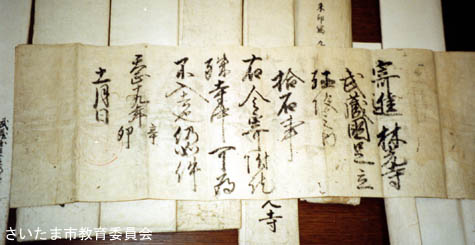 寄進 林光寺
武蔵國足立
之内
拾石事
右令寄附訖
殊寺中可為
不入者也仍如件
天正十九年 辛卯
十一月日
さいたま市教育委員会